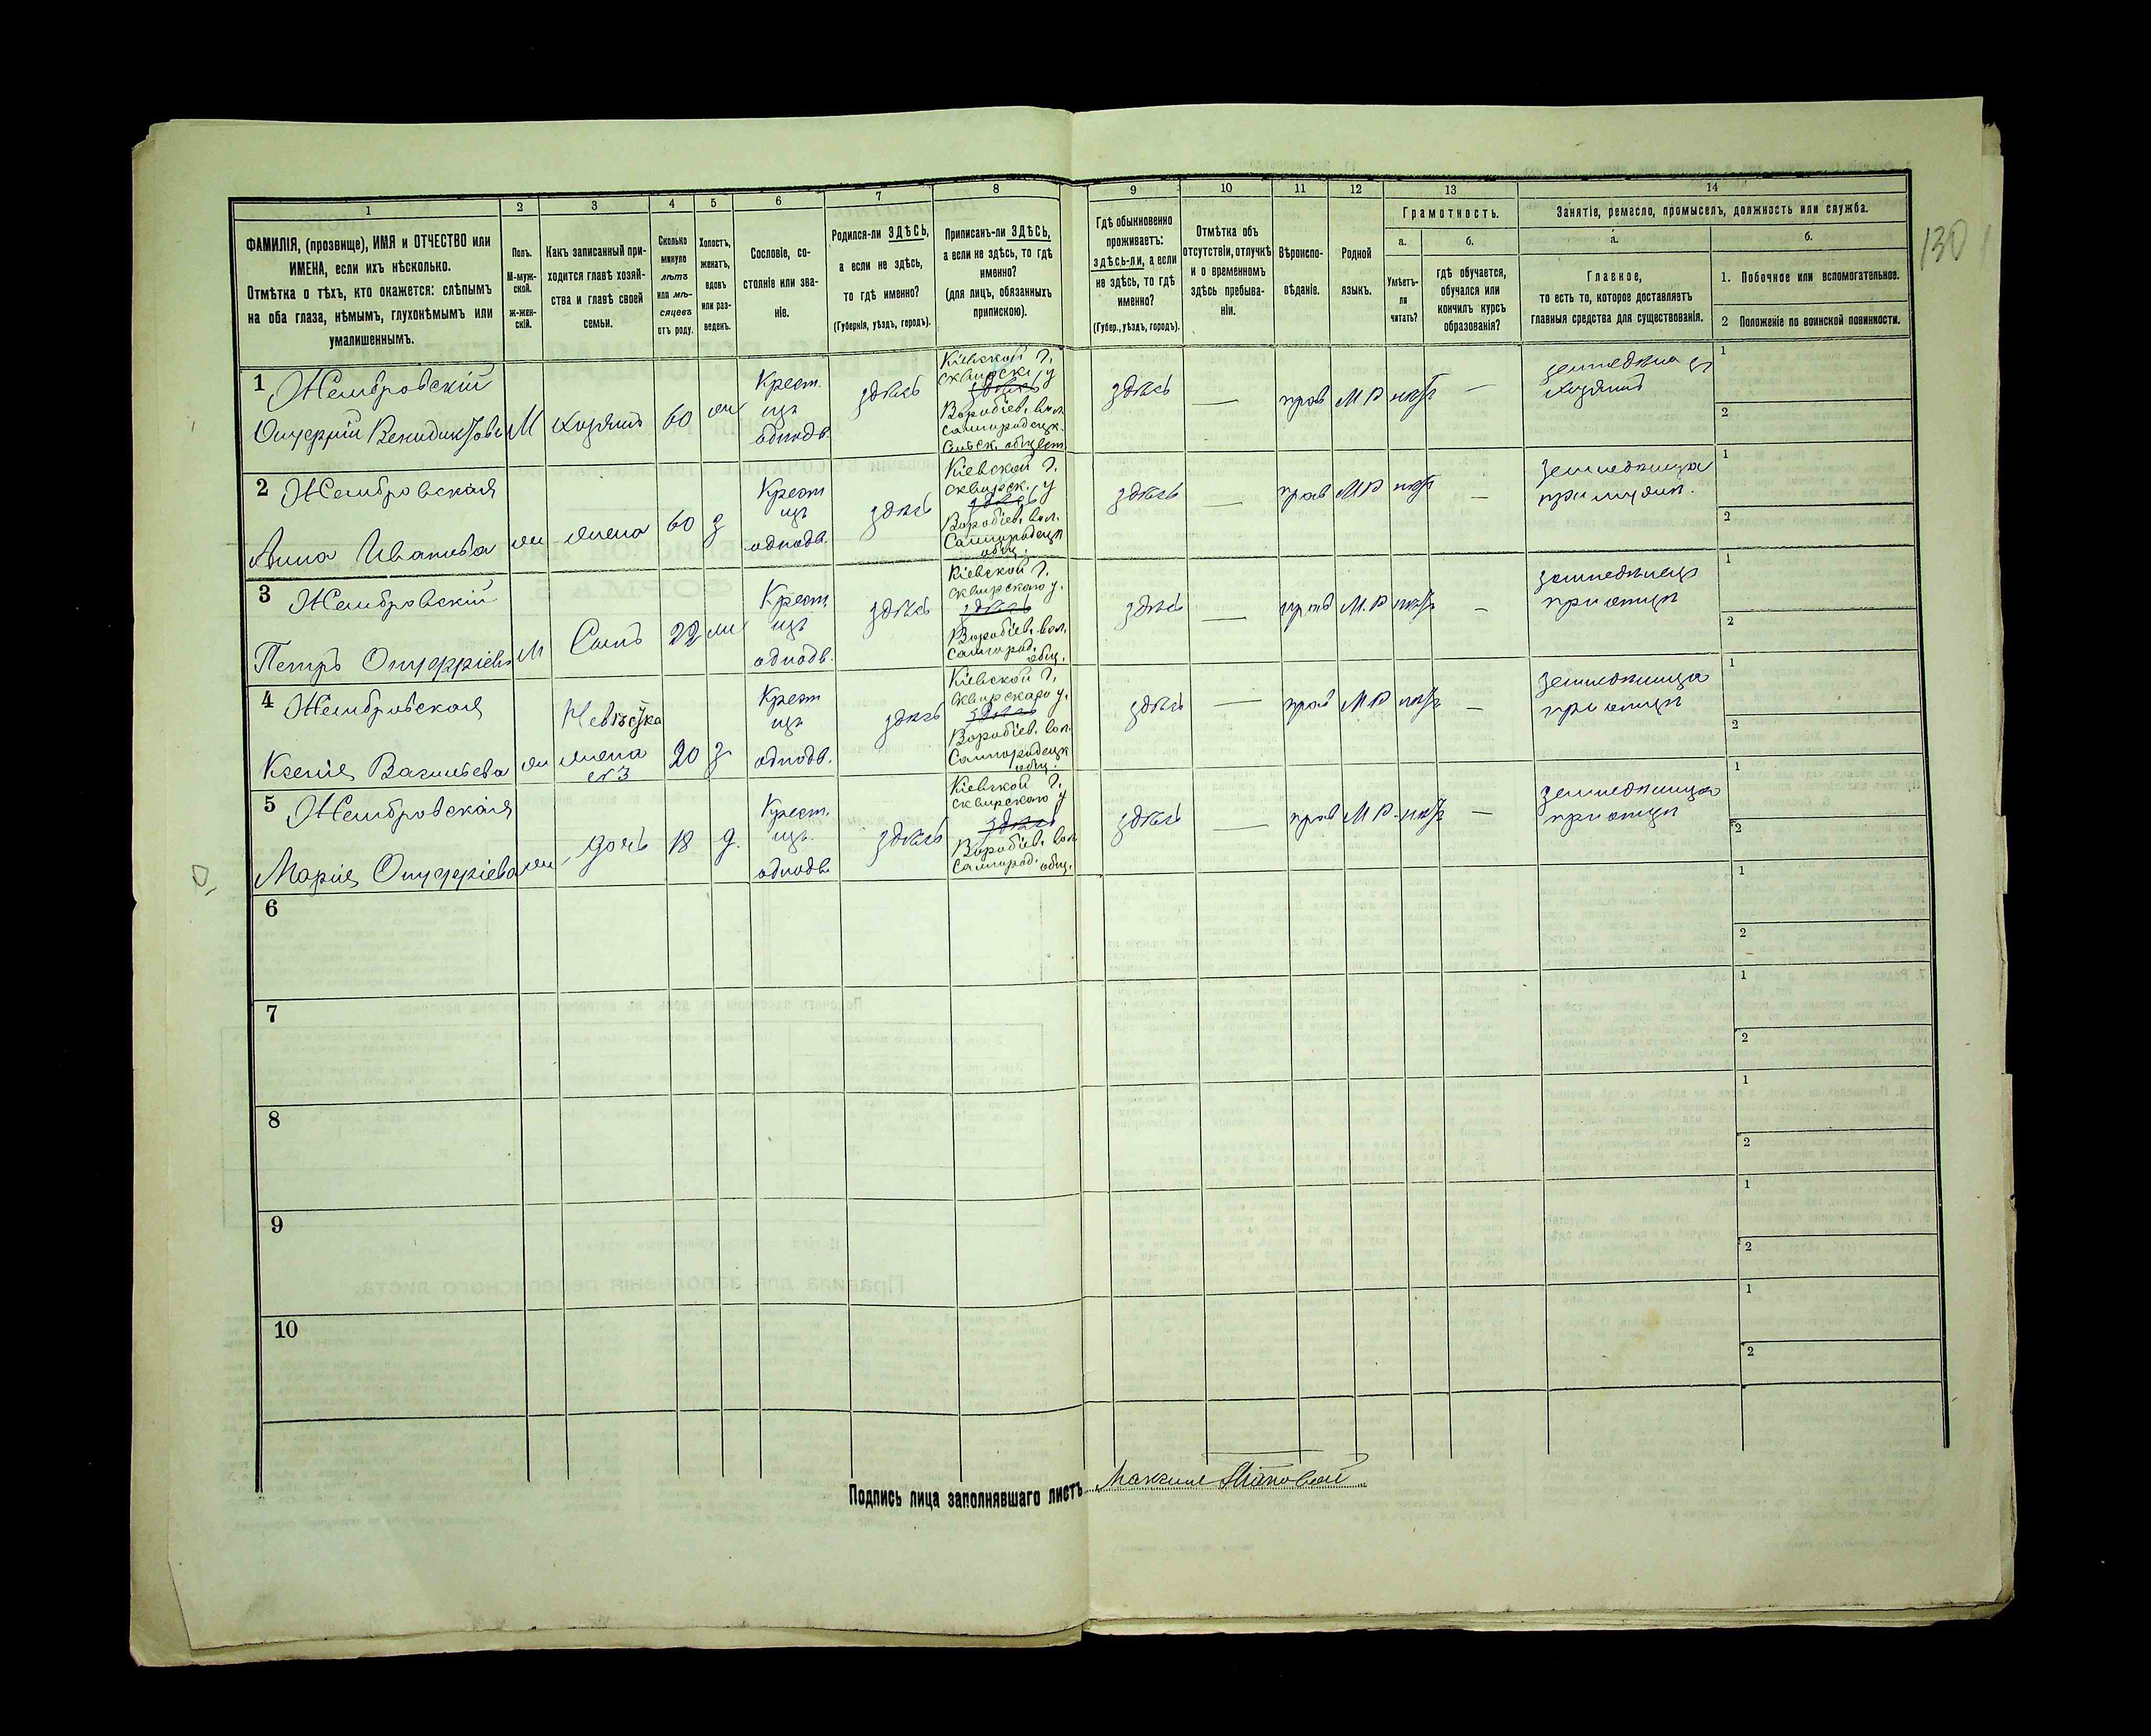 1 2 3 4 5 6 7 8 9 10 11 12 13 14
ФАМИЛІЯ, (прозвище), ИМЯ и ОТЧЕСТВО или
ИМЕНА, если ихъ нѣсколько.
Отмѣтка о тѣхъ, кто окажется: слѣпымъ
на оба глаза, нѣмымъ, глухонѣмымъ или
умалишеннымъ.
Полъ.
М-муж-
ской.
ж-жен-
скій.
Какъ записанный при-
ходится главѣ хозяй-
ства и главѣ своей
семьи.
Сколько
минуло
лѣтъ
или мѣ-
сяцевъ
отъ роду.
Холостъ,
женатъ,
вдовъ
или раз-
веденъ.
Сословіе, со-
стояніе или зва-
ніе.
Родился-ли ЗДѢСЬ,
а если не здѣсь,
то гдѣ именно?
(Губернія, уѣздъ, городъ).
Приписанъ-ли ЗДѢСЬ,
а если не здѣсь, то гдѣ
именно?
(для лицъ, обязанныхъ
припискою).
Гдѣ обыкновенно
проживаетъ:
здѣсь-ли, а если
не здѣсь, то гдѣ
именно?
(Губер., уѣздъ, городъ).
Отмѣтка объ
отсутствіи, отлучкѣ
и о временномъ
здѣсь пребыва-
ніи.
Вѣроиспо-
вѣданіе.
Родной
языкъ.
Грамотность.
а.
Умѣетъ-
ли
читать?
б.
гдѣ обучается,
обучался или
кончилъ курсъ
образованія?
Занятіе, ремесло, промыселъ, должность или служба.
а.
Главное,
то есть то, которое доставляетъ
главныя средства для существованія.
б.
1. Побочное или вспомогательное.
2 Положеніе по воинской повинности.
130
1 Жембровскій
Онуфрій Венидиктовъ М хозяинъ 60 ж
Крест.
изъ
однодв.
здѣсь
Кіевской г.
сквирск. у
здѣсь
Воробіев. вол.
Самгородецк.
общест.
здѣсь — прав М Р нѣтъ —
хозяинъ
1
2
2 Жембровская
Анна Иванова ж жена 60 з
Крест
изъ
однодв.
здѣсь
Кіевской г.
сквирск. у
здѣсь
Воробіев. вол.
Самгородецк
общ.
здѣсь — прав М Р нѣтъ —
земледѣлица
при мужѣ.
1
2
3 Жембровскій
Петръ Онуфріевъ М Сынъ 22 ж
Крест
изъ
однодв.
здѣсь
Кіевской г.
сквирскаго у.
здѣсь
Воробіев. вол.
Самгород.
общ.
здѣсь — прав М.Р нѣтъ —
земледѣлецъ
при отцѣ
1
2
4 Жембровская
Ксенія Васильева ж
Невѣстка
жена
№3
20 з
Крест
изъ
однодв.
здѣсь
Кіевской г.
сквирскаго у.
здѣсь
Воробіев. вол.
Самгородецк
общ.
здѣсь — прав М Р нѣтъ —
земледѣлица
при отцѣ
1
2
5 Жембровская
Марія Онуфріева ж дочь 18 д.
Крест.
изъ
однодв.
здѣсь
Кіевской г.
сквирскаго у
здѣсь
Воробіев. вол
Самгород. общ.
здѣсь — прав М Р. нѣтъ —
земледѣлица
при отцѣ
1
2
6
1
2
7
1
2
8
1
2
9
1
2
10
1
2
Подпись лица заполнявшаго листъ Максим